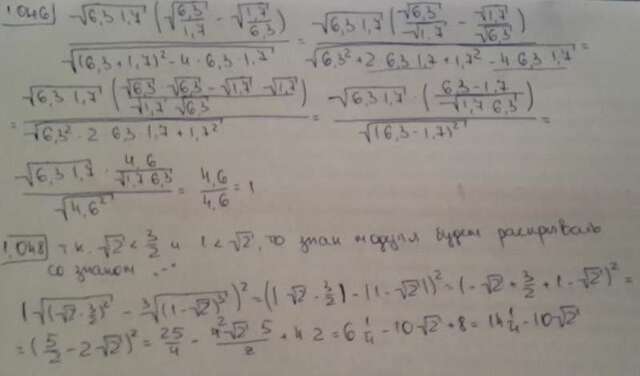 1.046 √(6,3·1,7) (√(6,3/1,7) − √(1,7/6,3)) / √((6,3+1,7)² − 4·6,3·1,7) = √(6,3·1,7) (√6,3/√1,7 − √1,7/√6,3) / √(6,3² + 2·6,3·1,7 + 1,7² − 4·6,3·1,7) =
= √(6,3·1,7) ((√6,3·√6,3 − √1,7·√1,7) / (√1,7·√6,3)) / √(6,3² − 2·6,3·1,7 + 1,7²) = √(6,3·1,7) · ((6,3−1,7) / √(1,7·6,3)) / √((6,3−1,7)²) =
√(6,3·1,7) · 4,6/√(1,7·6,3) / √(4,6²) = 4,6/4,6 = 1
1.048 т.к. √2 < 3/2 и 1 < √2, то знак модуля будем раскрывать
со знаком "−"
(√((√2 − 3/2)²) − ³√((1−√2)³))² = (|√2 − 3/2| − (1−√2))² = (−√2 + 3/2 + 1 − √2)² =
= (5/2 − 2√2)² = 25/4 − 4²√2·5/2 + 4·2 = 6 1/4 − 10√2 + 8 = 14 1/4 − 10√2